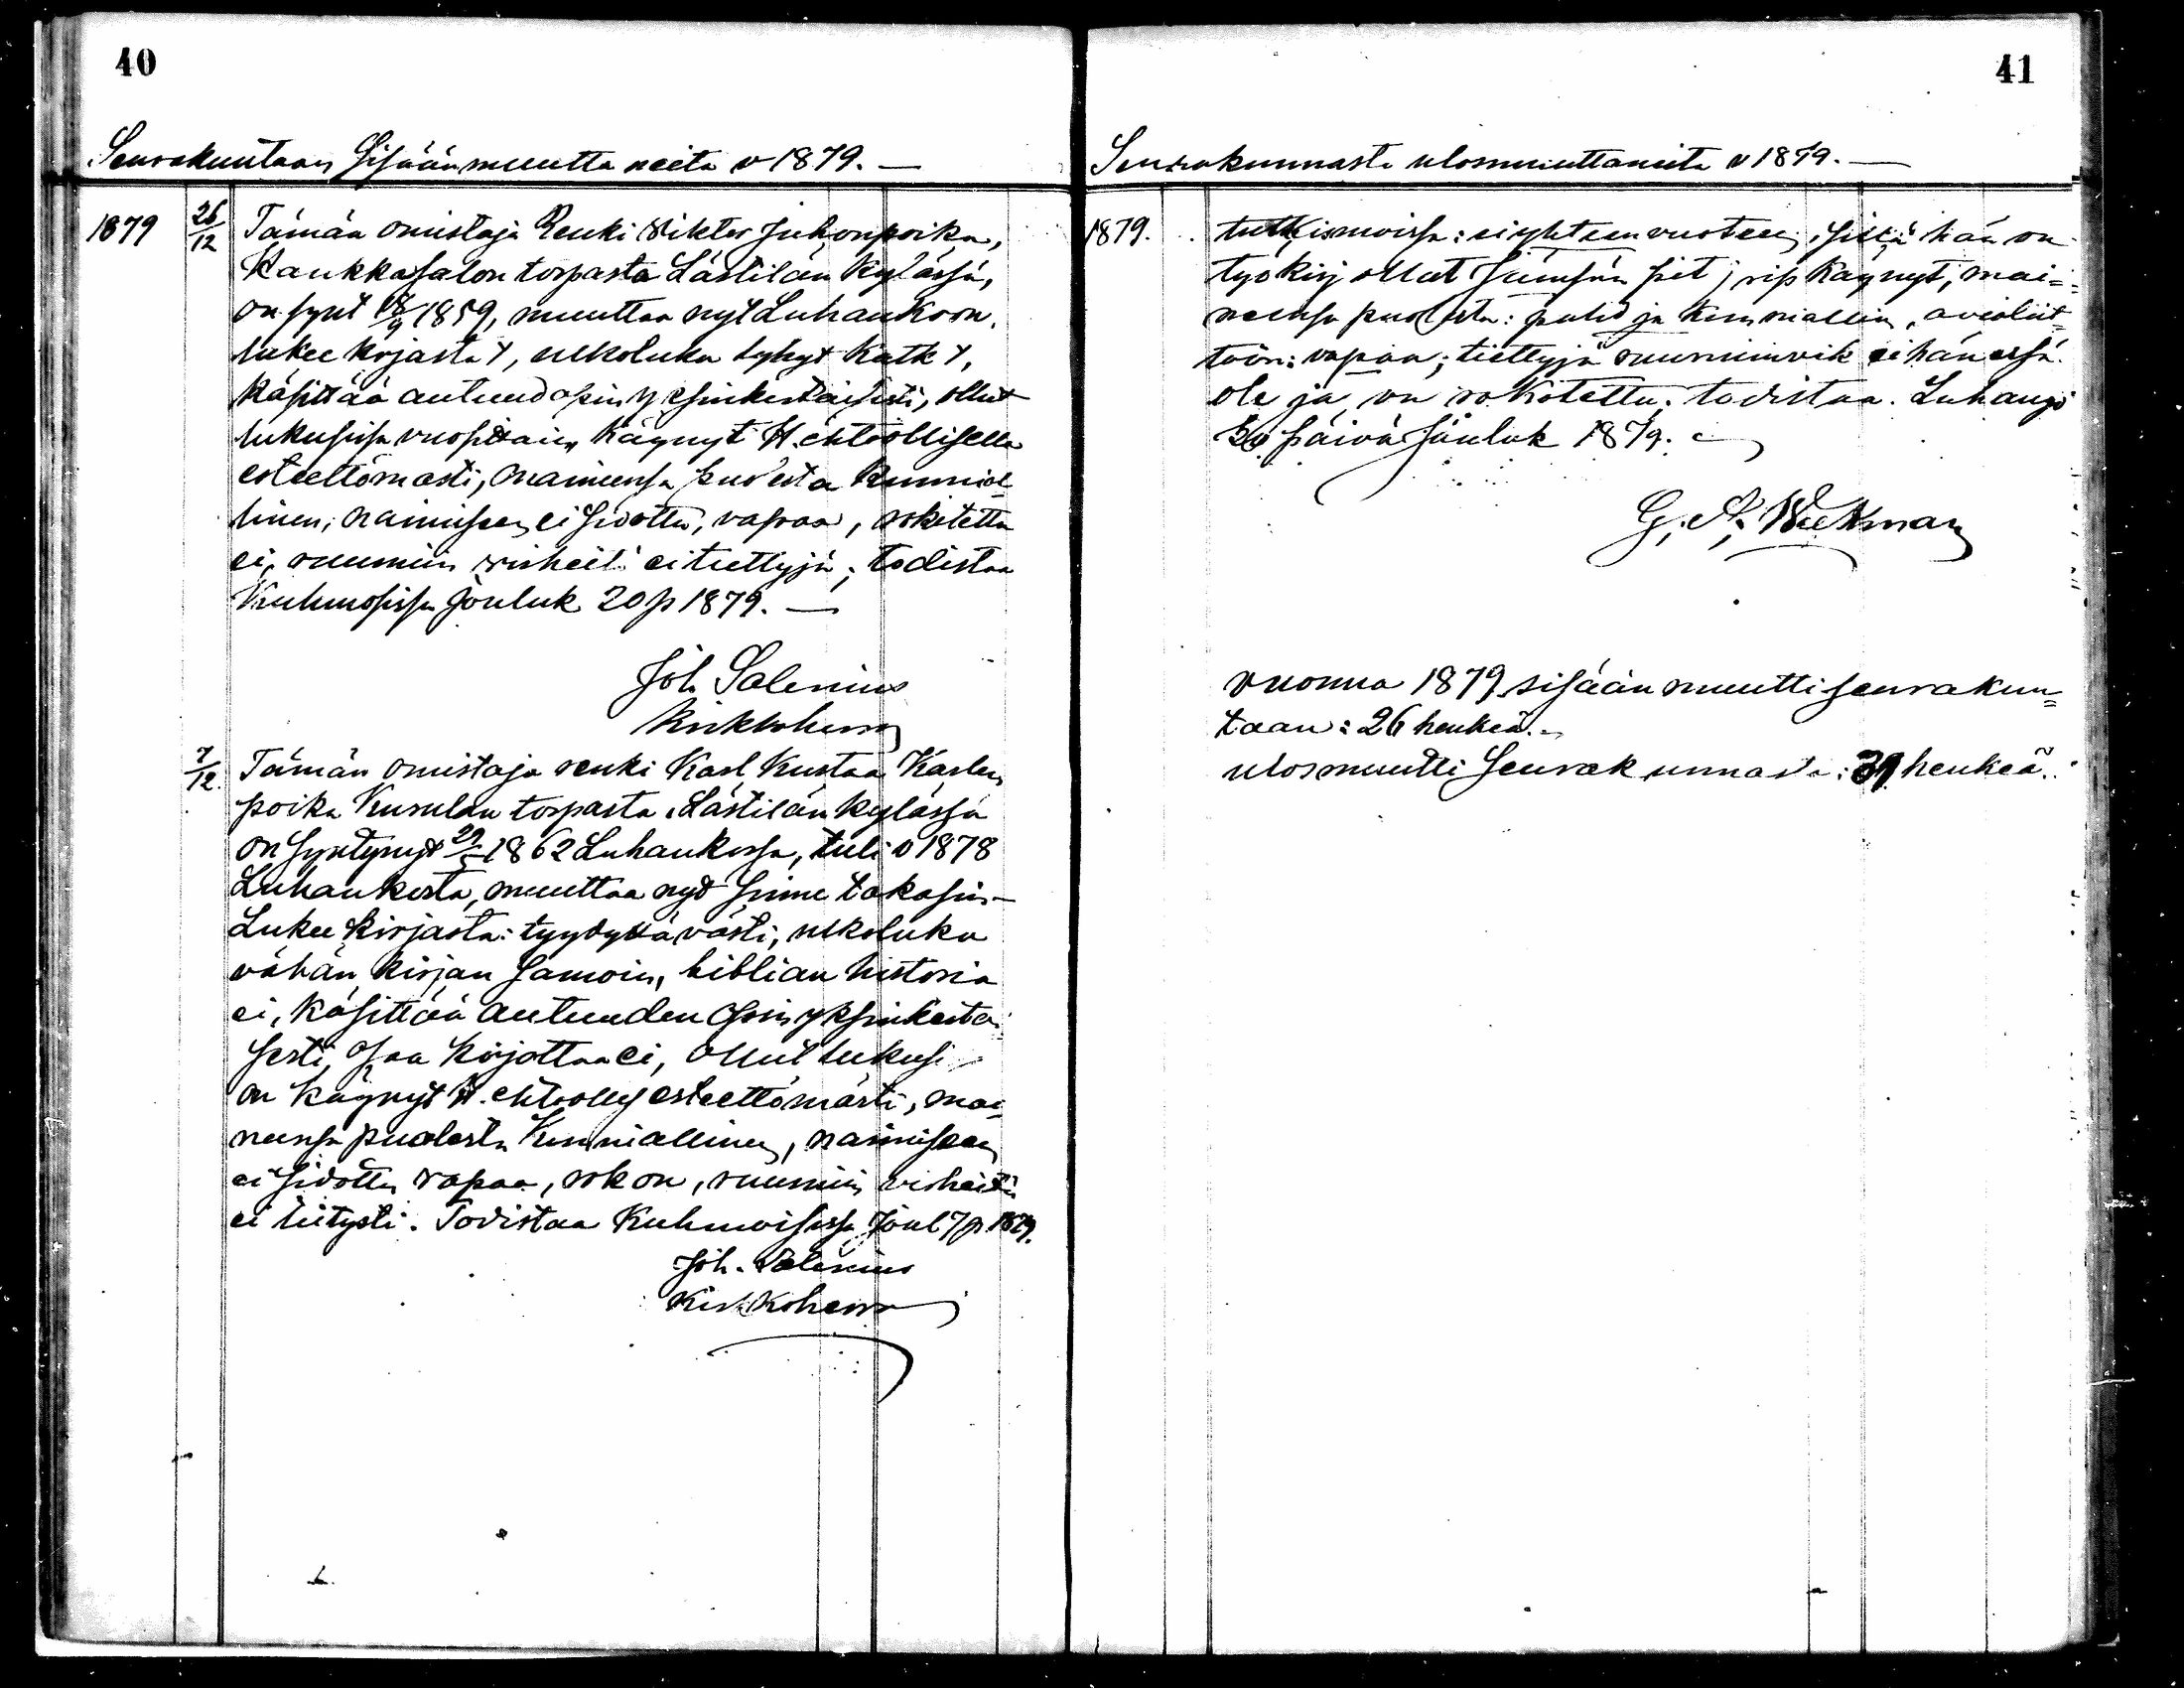 40
Seurakuntaan Sisäänmuuttaneita v 1879. —
1879 26/12 Tämän omistaja Renki Wiktor Juhonpoika,
Kaukkasalon torpasta Lästilän Kylässä,
on synt 18/9 1859, muuttaa nyt Luhankoon,
lukee kirjasta +, ulkoluku lyhyt katk +,
käsittää autuud opin yksinkertaisesti, ollut
lukusissa vuosittain käynyt H. ehtoollisella
esteettömästi, maineensa puolesta kunnial-
linen, naimiseen ei sidottu, vapaa, rokotettu
ei, ruumiin wirheitä ei tiettyjä; todistaa
Kuhmoisissa Jouluk 20 p 1879. —
Joh Salenius
Kirkkoherra
7/12. Tämän omistaja renki Karl Kustaa Karlen
poika Kurulan torpasta Lästilän kylässä
on syntynyt 1862 Luhankossa, tuli v 1878
Luhankosta, muuttaa nyt sinne takasin —
Lukee kirjasta: tyydyttävästi, ulkoluku
vähän kirjan samoin, biblian historia
ei, käsittää autuuden opin yksinkertai
sesti, osaa kirjottaa ei, ollut lukusi
on käynyt H. ehtoolls esteettömästi, mai
neensa puolesta kunniallinen, naimiseen
ei sidottu vapaa, rok on, ruumiin virheitä
ei tiitysti. Todistaa Kuhmoisissa Joul 7 p. 1879.
Joh. Salenius
Kirkkoherra
41
Seurakunnasta ulosmuuttaneita v 1879. —
1879. tutkismoissa: ei yhteen vuoteen, sillä hän on
työkirj ollut Jämsän pit; rip käynyt, mai=
neensa puolesta: puhd ja kunniallinen, avioliit=
toon: vapaa; tiettyjä ruumiinvik ei hänessä
ole ja on rokotettu; todistaa. Luhangos
30 päivä Jouluk 1879.
G. A. Wekman
vuonna 1879 sisään muutti seurakun=
taan: 26 henkeä. —
ulosmuutti Seurakunnasta: 39 henkeä.